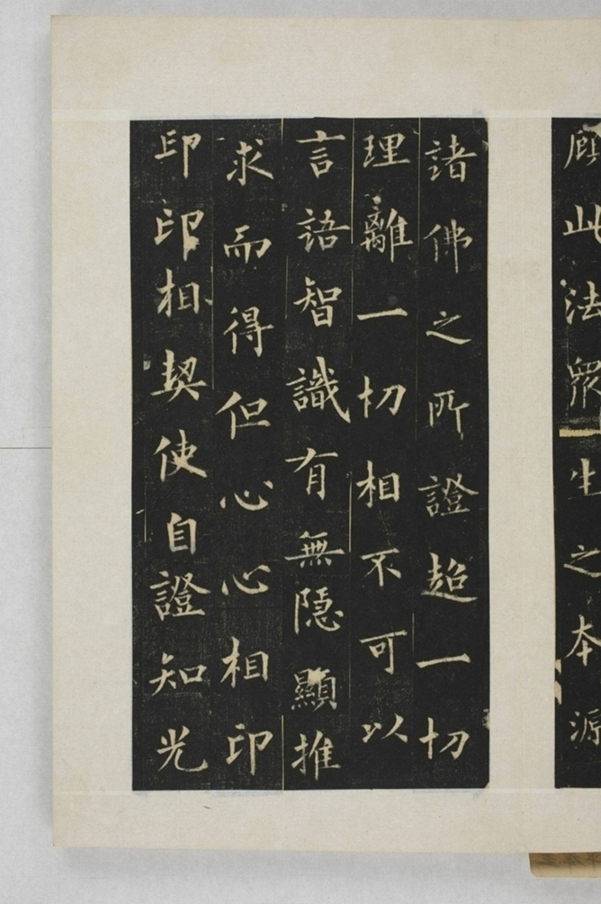 顧此法衆生之本源
諸佛之所證超一切
理離一切相不可以
言語智識有無隐顯推
求而得但心心相印
印印相契使自證知光